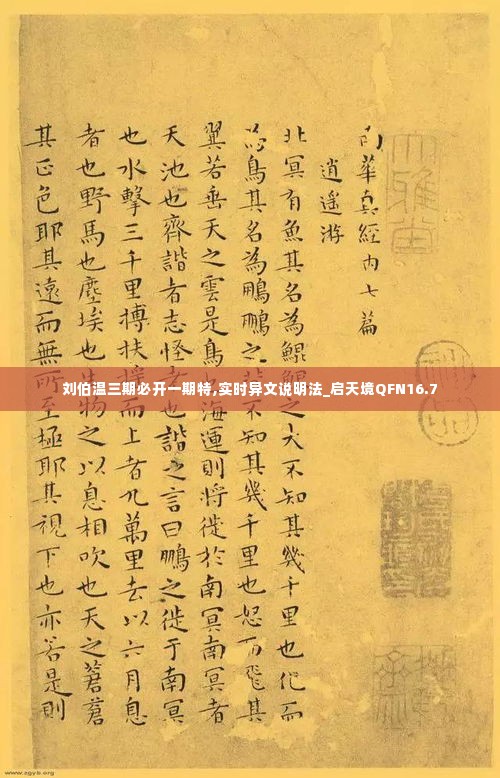 南華真經內七篇
逍遙游
北冥有魚其名為鯤鯤之大不知其幾千里也化而
為鳥其名為鵬鵬之不知其幾千里也怒而飛其
翼若垂天之雲是鳥海運則將徙於南冥南冥者
天池也齊諧者志怪者也諧之言曰鵬之徙于南冥
也水擊三千里摶扶而上者九萬里去以六月息
者也野馬也塵埃也物之以息相吹也天之蒼蒼
其正色耶其遠而無所至極耶其視下也亦若是則
刘伯温三期必开一期特,实时异文说明法_启天境QFN16.7
www.zgyb.org